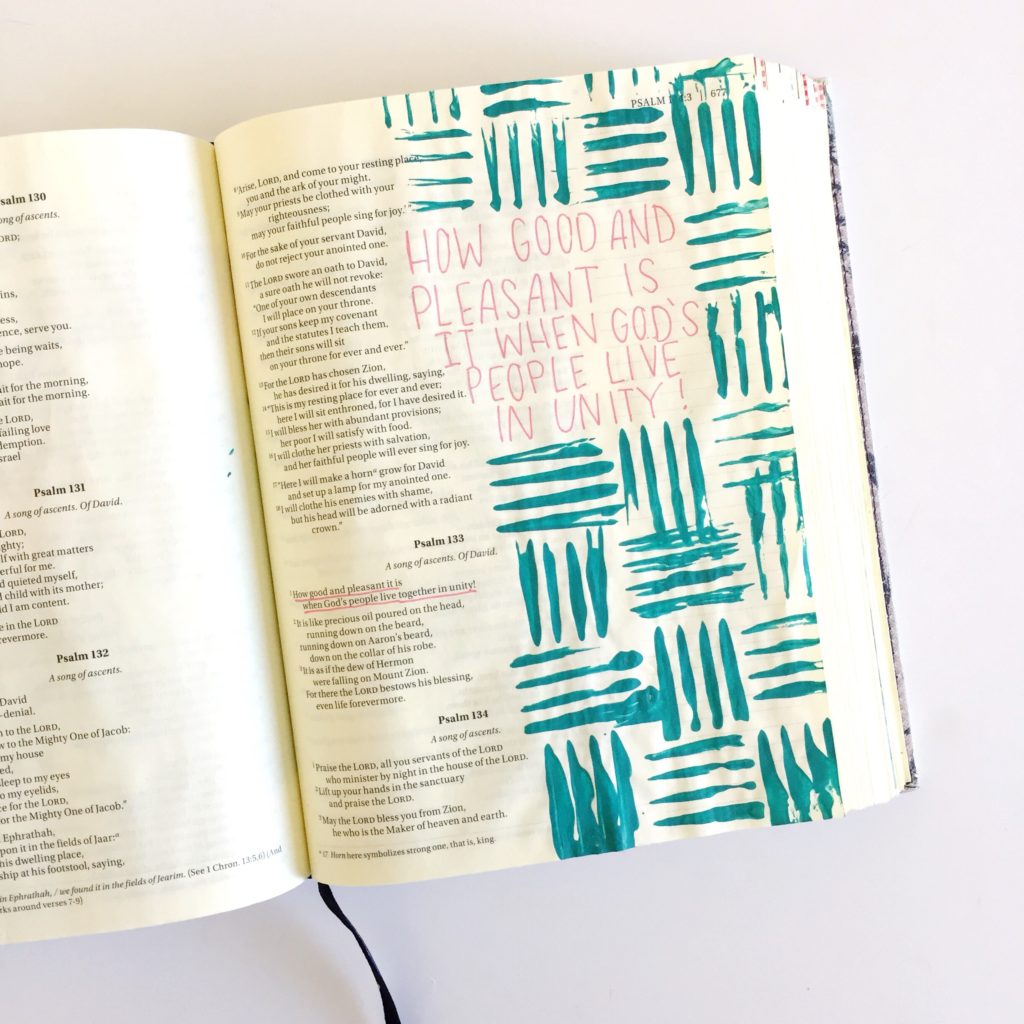 salm 130
ong of ascents.
ORD;
ins,
ess,
ence, serve you.
e being waits,
hope.
ait for the morning,
ait for the morning.
e LORD,
failing love
demption.
srael
Psalm 131
A song of ascents. Of David.
LORD,
ghty;
lf with great matters
erful for me.
d quieted myself,
d child with its mother;
d I am content.
e in the LORD
evermore.
Psalm 132
A song of ascents.
David
-denial.
h to the LORD,
w to the Mighty One of Jacob:
my house
ed,
sleep to my eyes
o my eyelids,
ce for the LORD,
or the Mighty One of Jacob."
Ephrathah,
pon it in the fields of Jaar:a
his dwelling place,
ship at his footstool, saying,
in Ephrathah, / we found it in the fields of Jearim. (See 1 Chron. 13:5,6) (And
rks around verses 7-9)
PSALM 3 | 677
8"Arise, LORD, and come to your resting place,
you and the ark of your might.
9May your priests be clothed with your
righteousness;
may your faithful people sing for joy.'"
10For the sake of your servant David,
do not reject your anointed one.
11The LORD swore an oath to David,
a sure oath he will not revoke:
"One of your own descendants
I will place on your throne.
12If your sons keep my covenant
and the statutes I teach them,
then their sons will sit
on your throne for ever and ever."
13For the LORD has chosen Zion,
he has desired it for his dwelling, saying,
14"This is my resting place for ever and ever;
here I will sit enthroned, for I have desired it.
15I will bless her with abundant provisions;
her poor I will satisfy with food.
16I will clothe her priests with salvation,
and her faithful people will ever sing for joy.
17"Here I will make a horna grow for David
and set up a lamp for my anointed one.
18I will clothe his enemies with shame,
but his head will be adorned with a radiant
crown."
Psalm 133
A song of ascents. Of David.
1How good and pleasant it is
when God's people live together in unity!
2It is like precious oil poured on the head,
running down on the beard,
running down on Aaron's beard,
down on the collar of his robe.
3It is as if the dew of Hermon
were falling on Mount Zion.
For there the LORD bestows his blessing,
even life forevermore.
Psalm 134
A song of ascents.
1Praise the LORD, all you servants of the LORD
who minister by night in the house of the LORD.
2Lift up your hands in the sanctuary
and praise the LORD.
3May the LORD bless you from Zion,
he who is the Maker of heaven and earth.
a 17 Horn here symbolizes strong one, that is, king.
HOW GOOD AND
PLEASANT IS
IT WHEN GOD'S
PEOPLE LIVE
IN UNITY!